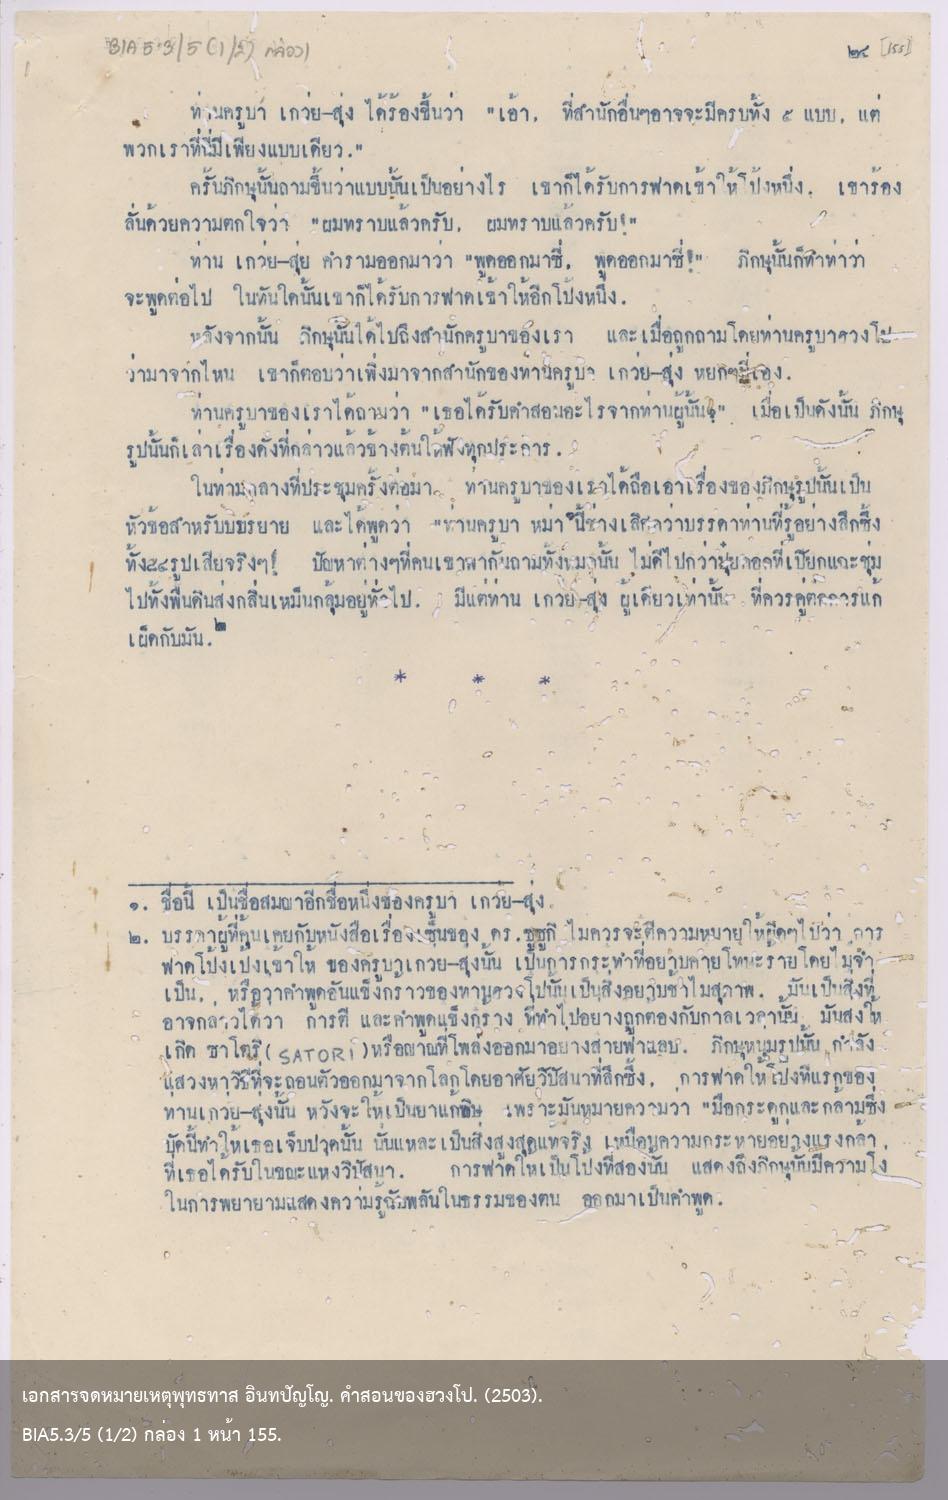 BIA 5.3/5 (1/2) กล่อง 1
๒๔ [155]
ท่านครูบา เกว่ย-สุ่ง ได้ร้องขึ้นว่า "เอ้า, ที่สำนักอื่นๆอาจจะมีครบทั้ง ๕ แบบ, แต่
พวกเราที่นี่มีเพียงแบบเดียว."
ครั้นภิกษุนั้นถามขึ้นว่าแบบนั้นเป็นอย่างไร เขาก็ได้รับการฟาดเข้าให้โป้งหนึ่ง. เขาร้อง
ลั่นด้วยความตกใจว่า "ผมทราบแล้วครับ, ผมทราบแล้วครับ!"
ท่าน เกว่ย-สุ่ย คำรามออกมาว่า "พูดออกมาซี่, พูดออกมาซี่!" ภิกษุนั้นก็ทำท่าว่า
จะพูดต่อไป ในทันใดนั้นเขาก็ได้รับการฟาดเข้าให้อีกโป้งหนึ่ง.
หลังจากนั้น ภิกษุนั้นได้ไปถึงสำนักครูบาของเรา และเมื่อถูกถามโดยท่านครูบาฮวงโป
ว่ามาจากไหน เขาก็ตอบว่าเพิ่งมาจากสำนักของท่านครูบา เกว่ย-สุ่ง หยกๆนี่เอง.
ท่านครูบาของเราได้ถามว่า "เธอได้รับคำสอนอะไรจากท่านผู้นั้น?" เมื่อเป็นดังนั้น ภิกษุ
รูปนั้นก็เล่าเรื่องดังที่กล่าวแล้วข้างต้นให้ฟังทุกประการ.
ในท่ามกลางที่ประชุมครั้งต่อมา ท่านครูบาของเราได้ถือเอาเรื่องของภิกษุรูปนั้นเป็น
หัวข้อสำหรับบรรยาย และได้พูดว่า "ท่านครูบา หม่า๑นี้ช่างเลิศกว่าบรรดาท่านที่รู้อย่างลึกซึ้ง
ทั้ง๘๔รูปเสียจริงๆ! ปัญหาต่างๆที่คนเขาพากันถามทั้งหมดนั้น ไม่ดีไปกว่าปุ๋ยคอกที่เปียกแฉะชุ่ม
ไปทั้งพื้นดินส่งกลิ่นเหม็นกลุ้มอยู่ทั่วไป. มีแต่ท่าน เกว่ย-สุ่ง ผู้เดียวเท่านั้น ที่ควรคู่ต่อการแก้
เผ็ดกับมัน.๒
* * *
๑. ชื่อนี้ เป็นชื่อสมญาอีกชื่อหนึ่งของครูบา เกว่ย-สุ่ง.
๒. บรรดาผู้ที่คุ้นเคยกับหนังสือเรื่องเซ็นของ ดร.ซูซูกิ ไม่ควรจะตีความหมายให้ผิดๆไปว่า การ
ฟาดโป้งเป้งเข้าให้ ของครูบาเกว่ย-สุ่งนั้น เป็นการกระทำที่อย่างหยาบคายโหดร้ายโดยไม่จำ
เป็น, หรือว่าคำพูดอันแข็งกร้าวของท่านฮวงโปนั้นเป็นสิ่งหยาบช้าไม่สุภาพ. มันเป็นสิ่งที่
อาจกล่าวได้ว่า การตี และคำพูดแข็งกร้าง ที่ทำไปอย่างถูกต้องกับกาลเวลานั้น มันส่งให้
เกิด ซาโตริ(SATORI)หรือญาณที่โพล่งออกมาอย่างสายฟ้าแลบ. ภิกษุหนุ่มรูปนั้น กำลัง
แสวงหาวิธีที่จะถอนตัวออกมาจากโลกโดยอาศัยวิปัสนาที่ลึกซึ้ง, การฟาดให้โป้งที่แรกของ
ท่านเกว่ย-สุ่งนั้น หวังจะให้เป็นยาแก้พิษ เพราะมันหมายความว่า "มือกระดูกและกล้ามซึ่ง
บัดนี้ทำให้เธอเจ็บปวดนั้น นั่นแหละเป็นสิ่งสูงสุดแท้จริง เหมือนความกระหายอย่างแรงกล้า,
ที่เธอได้รับในขณะแห่งวิปัสนา. การฟาดให้เป็นโป้งที่สองนั้น แสดงถึงภิกษุนั้นมีความโง่
ในการพยายามแสดงความรู้ฉับพลันในธรรมของตน ออกมาเป็นคำพูด.
เอกสารจดหมายเหตุพุทธทาส อินทปัญโญ. คำสอนของฮวงโป. (2503).
BIA5.3/5 (1/2) กล่อง 1 หน้า 155.